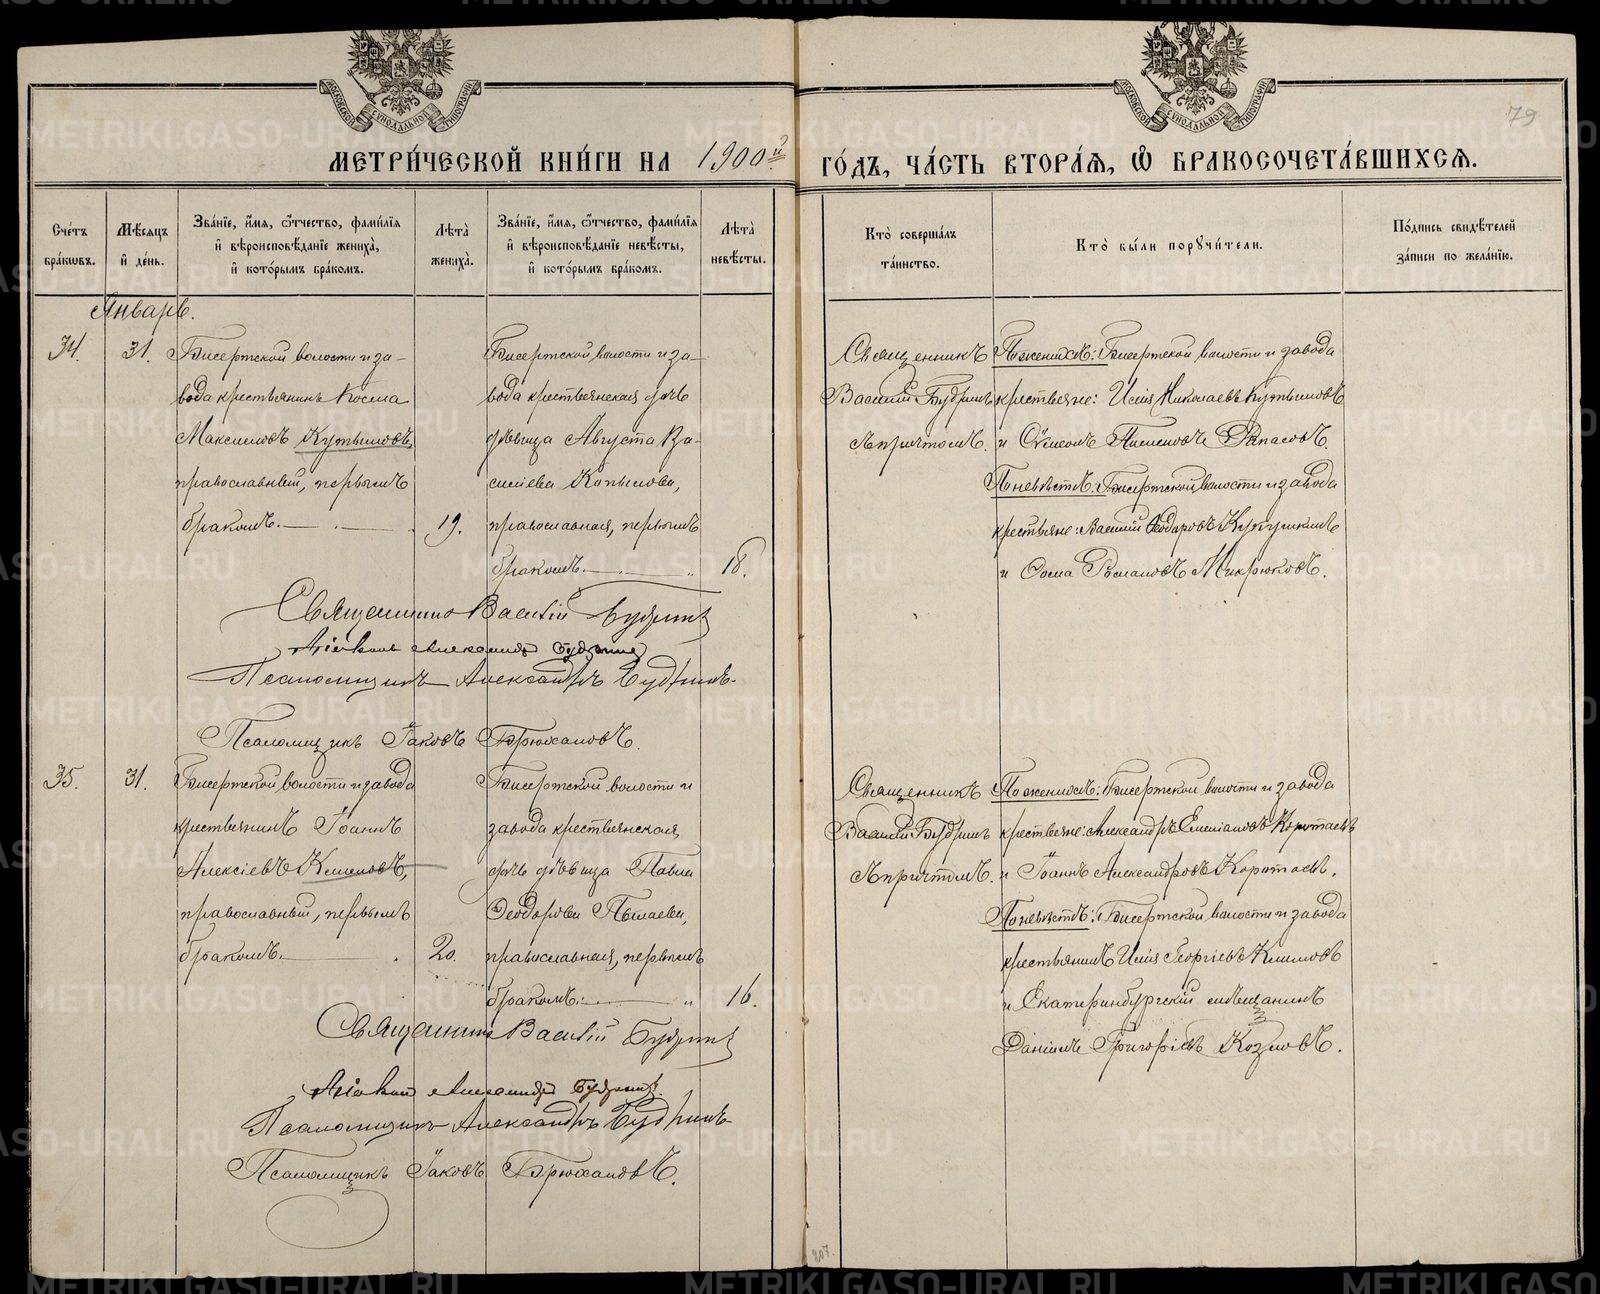 МОСКОВСКОЙ СѴНОДАЛЬНОЙ ТИПОГРАФІИ
МОСКОВСКОЙ СѴНОДАЛЬНОЙ ТИПОГРАФІИ
79
МЕТРИ́ЧЕСКОЙ КНИ́ГИ НА 1900й ГО́ДЪ, ЧА́СТЬ ВТОРА́Ѧ, Ѽ БРАКОСОЧЕТА́ВШИХСѦ.
Сче́тъ бра́кѡвъ.
Мѣ́сяцъ и҆ де́нь.
Зва́нїе, и҆́мѧ, ѻ҆́тчество, фамі́лїѧ и҆ вѣроисповѣ́данїе жениха̀, и҆ кото́рымъ бра́комъ.
Лѣ́та жениха̀.
Зва́нїе, и҆́мѧ, ѻ҆́тчество, фамі́лїѧ и҆ вѣроисповѣ́данїе невѣ́сты, и҆ кото́рымъ бра́комъ.
Лѣ́та невѣ́сты.
Кто̀ соверша́лъ та́инство.
Кто̀ бы́ли порꙋчи́тели.
По́дпись свидѣ́телей за́писи по жела́нїю.
Январь.
34.
31.
Бисертской волости и за-
вода крестьянинъ Косма
Максимовъ Кутымовъ,
православный, первымъ
бракомъ.
19.
Бисертской волости и за-
вода крестьянская дочь
дѣвица Августа Ва-
силіева Копылова,
православная, первымъ
бракомъ.
18.
Священникъ
Василій Будринъ
съ причтомъ.
По женихѣ: Бисертской волости и завода
крестьяне: Илія Николаевъ Кутымовъ
и Сѵмеонъ Пименовъ
По невѣстѣ: Бисертской волости и завода
крестьяне: Василій Ѳеодоровъ
и Ѳома Романовъ Микрюковъ.
Священникъ Василій Будринъ
Діаконъ Александръ Будринъ
Псаломщикъ Александръ Будринъ.
Псаломщикъ Іаковъ Брюхановъ.
35.
31.
Бисертской волости и завода
крестьянинъ Іоаннъ
Алексіевъ Климовъ,
православный, первымъ
бракомъ.
20.
Бисертской волости и
завода крестьянская
дочь дѣвица Павла
Ѳеодорова Пылаева,
православная, первымъ
бракомъ.
16.
Священникъ
Василій Будринъ
съ причтомъ.
По женихѣ: Бисертской волости и завода
крестьяне: Александръ Емеліановъ Коротаевъ
и Іоаннъ Александровъ Коротаевъ.
По невѣстѣ: Бисертской волости и завода
крестьянинъ Илія Георгіевъ Климовъ
и Екатеринбургскій мѣщанинъ
Даніилъ Григоріевъ Козловъ.
Священникъ Василій Будринъ
Діаконъ Александръ Будринъ.
Псаломщикъ Александръ Будринъ
Псаломщикъ Іаковъ Брюхановъ.
207.
METRIKI.GASO-URAL.RU